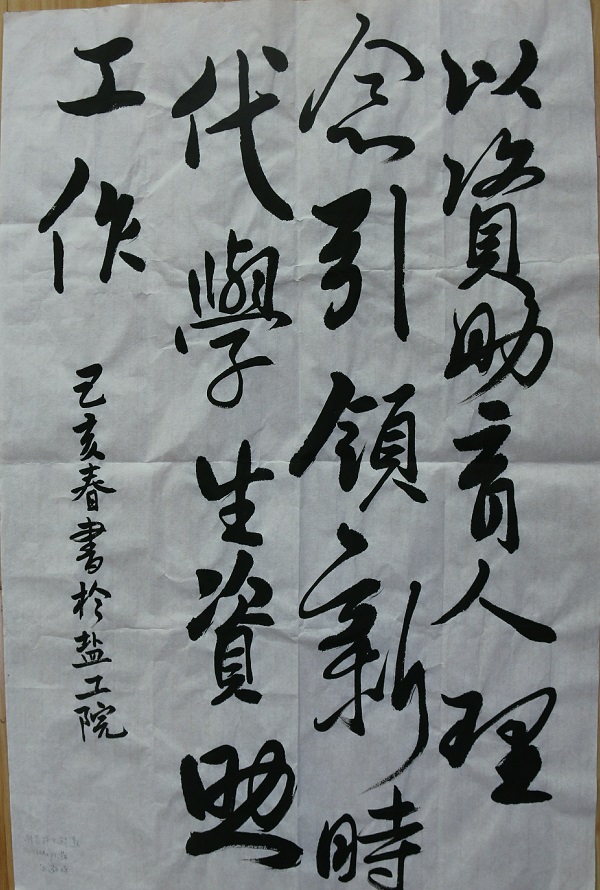 以資助育人理
念引領新時
代學生資助
工作
己亥春書於盐工院